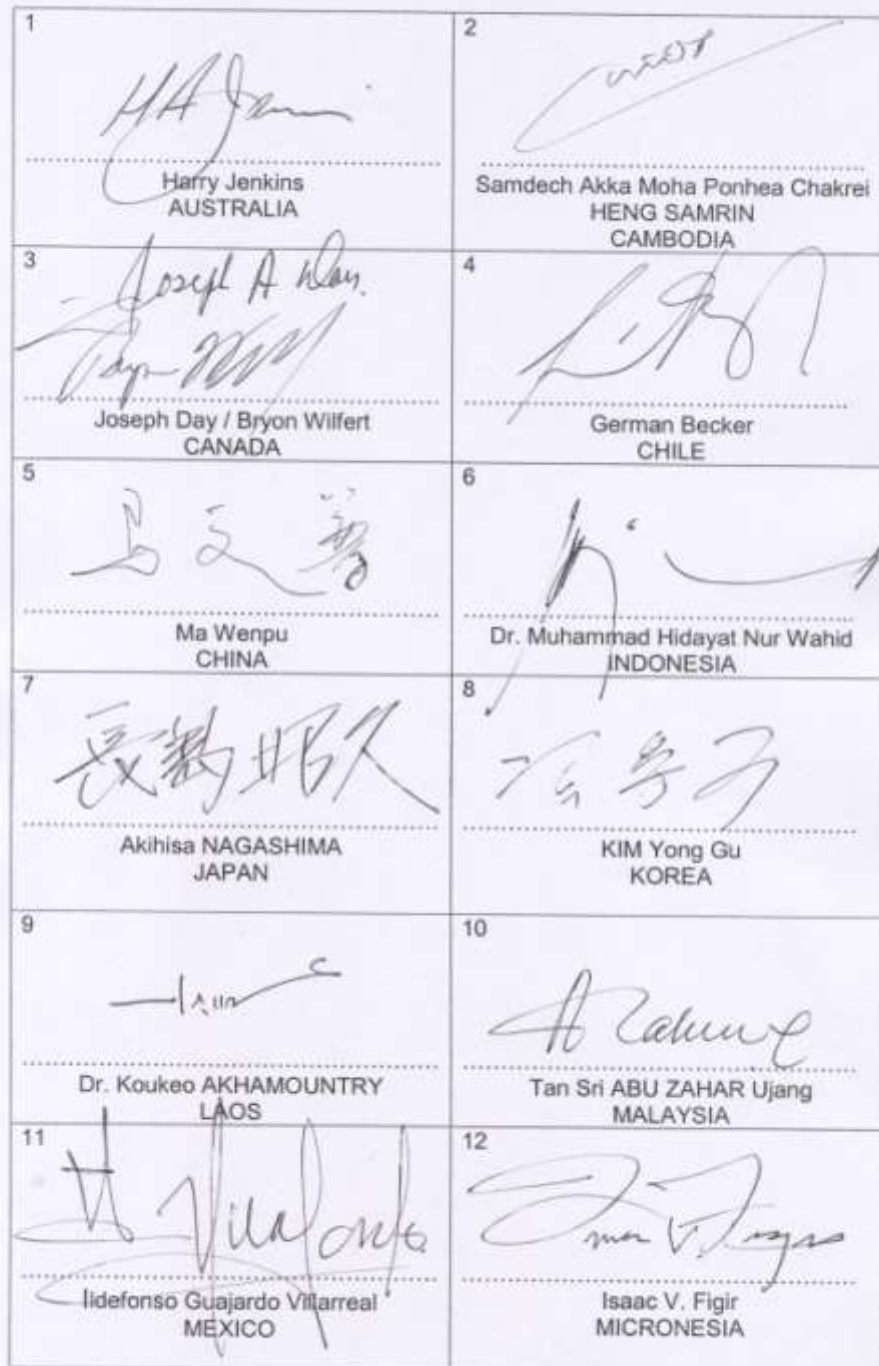 1
H A Jenkins
Harry Jenkins
AUSTRALIA
2
Samdech Akka Moha Ponhea Chakrei
HENG SAMRIN
CAMBODIA
3
Joseph A Day.
Joseph Day / Bryon Wilfert
CANADA
4
German Becker
CHILE
5
马文普
Ma Wenpu
CHINA
6
Dr. Muhammad Hidayat Nur Wahid
INDONESIA
7
長島昭久
Akihisa NAGASHIMA
JAPAN
8
KIM Yong Gu
KOREA
9
Dr. Koukeo AKHAMOUNTRY
LAOS
10
Tan Sri ABU ZAHAR Ujang
MALAYSIA
11
Ildefonso Guajardo Villarreal
MEXICO
12
Isaac V. Figir
MICRONESIA